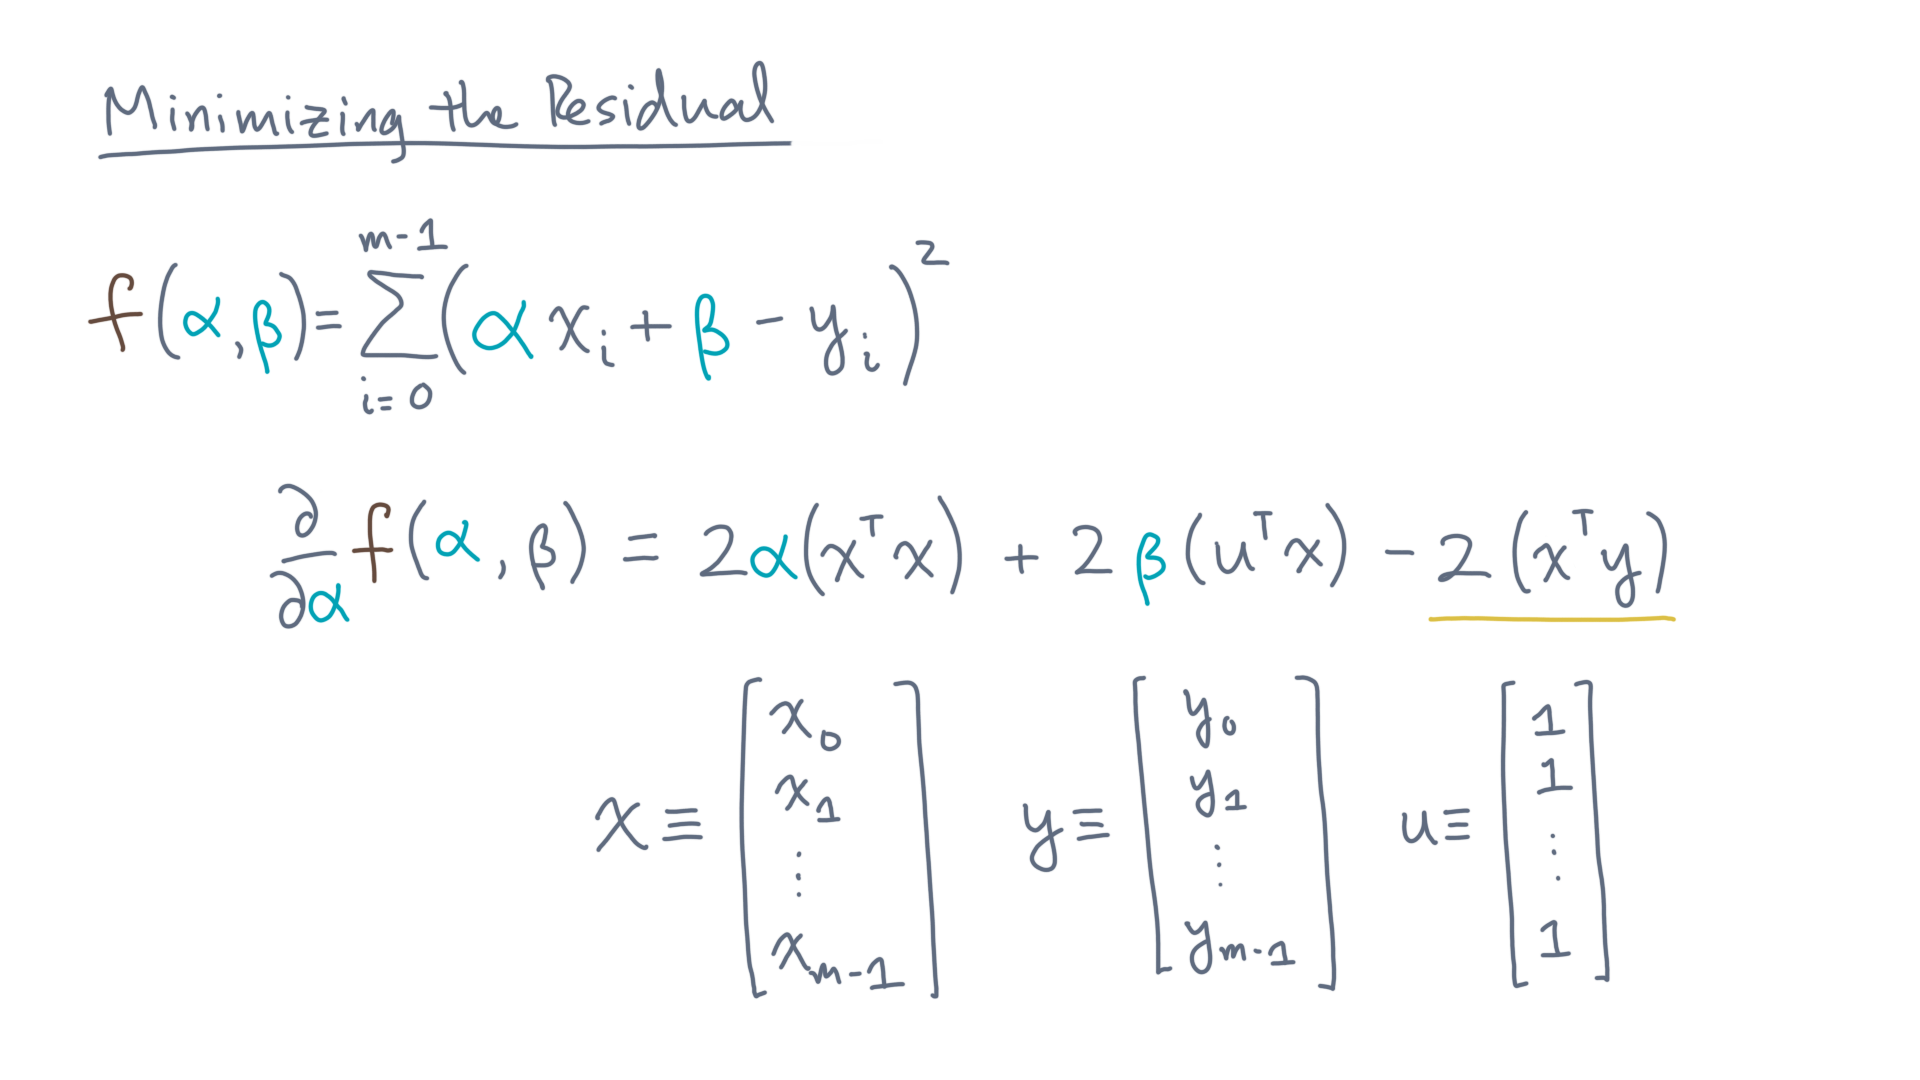 Minimizing the Residual
f(α,β)= ∑_{i=0}^{m-1} (α x_i + β - y_i)^2
∂/∂α f(α,β) = 2α(x^T x) + 2β(u^T x) - 2(x^T y)
x ≡ [x_0 x_1 ⋮ x_{m-1}] y ≡ [y_0 y_1 ⋮ y_{m-1}] u ≡ [1 1 ⋮ 1]